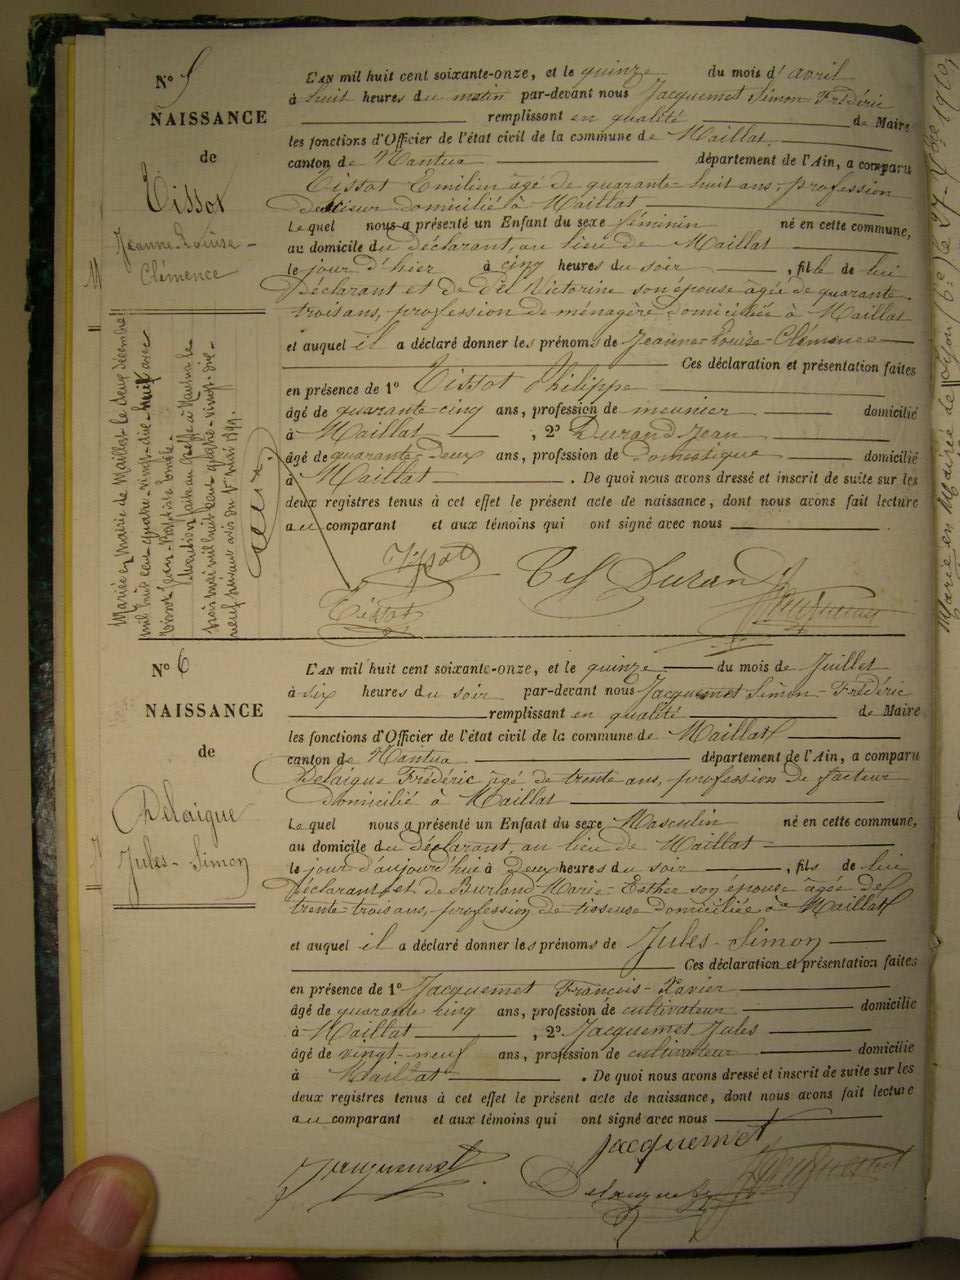 N° 5
NAISSANCE
de
Tissot
Jeanne-Louise-
Clémence
L'AN mil huit cent soixante-onze, et le quinze du mois d'avril
à huit heures du matin par-devant nous Jacquemet Simon-Frédéric
remplissant en qualité de Maire
les fonctions d'Officier de l'état civil de la commune de Maillat
canton de Nantua département de l'Ain, a comparu
Tissot Emilien âgé de quarante-huit ans, profession
domicilié à Maillat
Lequel nous a présenté un Enfant du sexe féminin né en cette commune,
au domicile du déclarant, au lieu de Maillat
le jour d'hier à cinq heures du soir, fille de lui
Déclarant et de Victorine son épouse agée de quarante-
trois ans, profession de ménagère domiciliée à Maillat
et auquel il a déclaré donner les prénoms de Jeanne-Louise-Clémence
Ces déclaration et présentation faites
en présence de 1° Tissot Philippe
âgé de quarante-cinq ans, profession de meunier domicilié
à Maillat, 2° Durand Jean
âgé de quarante-deux ans, profession de domestique domicilié
à Maillat. De quoi nous avons dressé et inscrit de suite sur les
deux registres tenus à cet effet le présent acte de naissance, dont nous avons fait lecture
au comparant et aux témoins qui ont signé avec nous
Tissot
Durand
Tissot
Jacquemet
Mariée en Mairie de Maillat le deux décembre
mil huit cent quatre-vingt-dix-huit avec
Jean-Baptiste
à Nantua le
trois mai mil huit cent quatre-vingt-dix-
neuf suivant avis du
Marié en Mairie de
N° 6
NAISSANCE
de
Delaigue
Jules-Simon
L'AN mil huit cent soixante-onze, et le quinze du mois de Juillet
à six heures du soir par-devant nous Jacquemet Simon-Frédéric
remplissant en qualité de Maire
les fonctions d'Officier de l'état civil de la commune de Maillat
canton de Nantua département de l'Ain, a comparu
Delaigue Frédéric âgé de trente ans, profession de facteur
domicilié à Maillat
Lequel nous a présenté un Enfant du sexe Masculin né en cette commune,
au domicile du déclarant, au lieu de Maillat
le jour d'aujourd'hui à Deux heures du soir, fils de lui
Déclarant et de Burland Marie-Esther son épouse âgée de
trente-trois ans, profession de tisseuse domiciliée à Maillat
et auquel il a déclaré donner les prénoms de Jules-Simon
Ces déclaration et présentation faites
en présence de 1° Jacquemet François-Xavier
âgé de quarante cinq ans, profession de cultivateur domicilié
à Maillat, 2° Jacquemet Jules
âgé de vingt-neuf ans, profession de cultivateur domicilié
à Maillat. De quoi nous avons dressé et inscrit de suite sur les
deux registres tenus à cet effet le présent acte de naissance, dont nous avons fait lecture
au comparant et aux témoins qui ont signé avec nous
Jacquemet
Jacquemet
Delaigue
Jacquemet